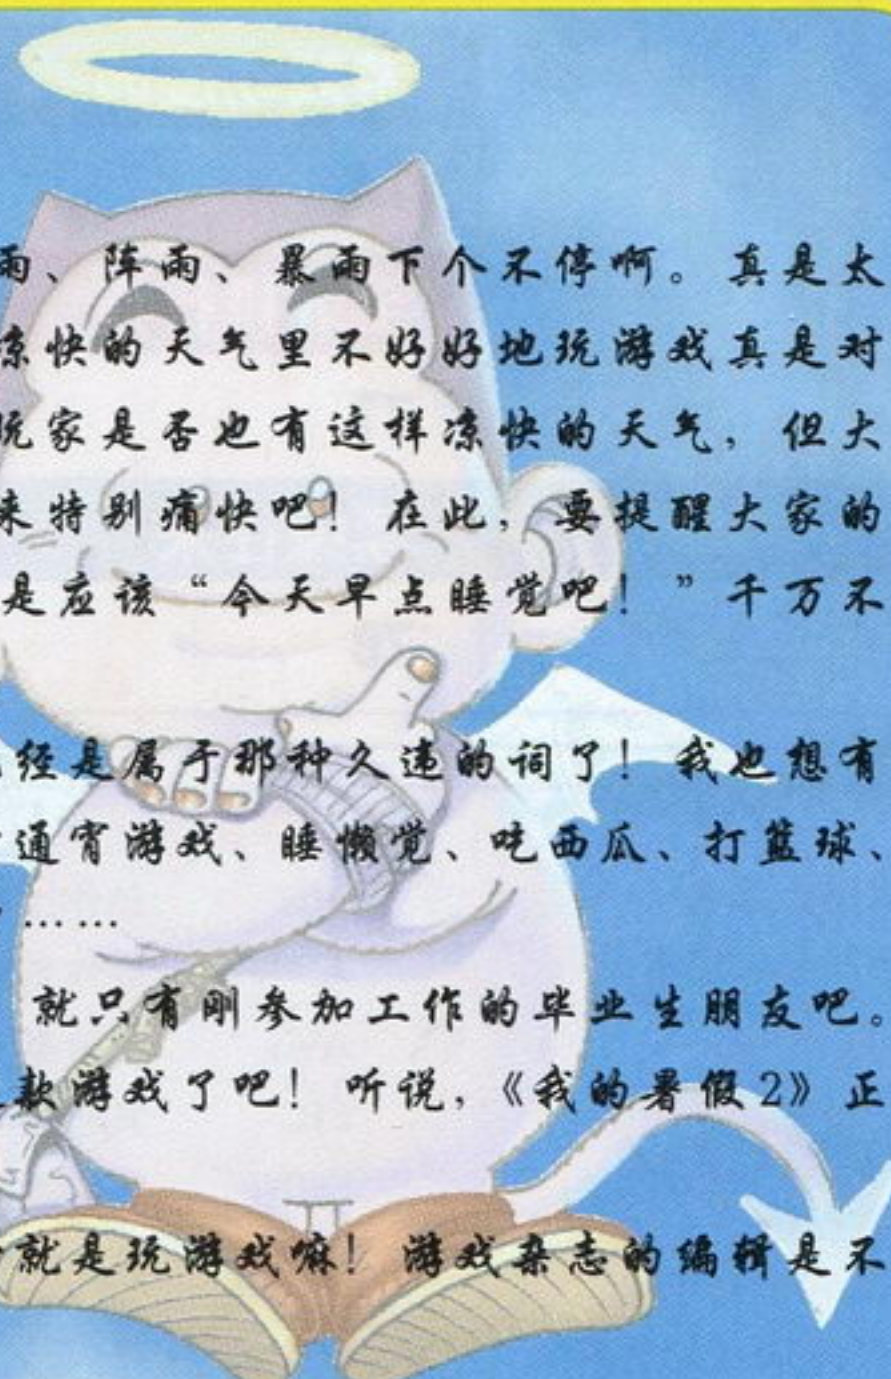 雨、阵雨、暴雨下个不停啊。真是太
凉快的天气里不好好地玩游戏真是对
玩家是否也有这样凉快的天气，但大
来特别痛快吧！在此，要提醒大家的
是应该“今天早点睡觉吧！”千万不
经是属于那种久违的词了！我也想有
通宵游戏、睡懒觉、吃西瓜、打篮球、
……
就只有刚参加工作的毕业生朋友吧。
款游戏了吧！听说，《我的暑假2》正
就是玩游戏嘛！游戏杂志的编辑是不